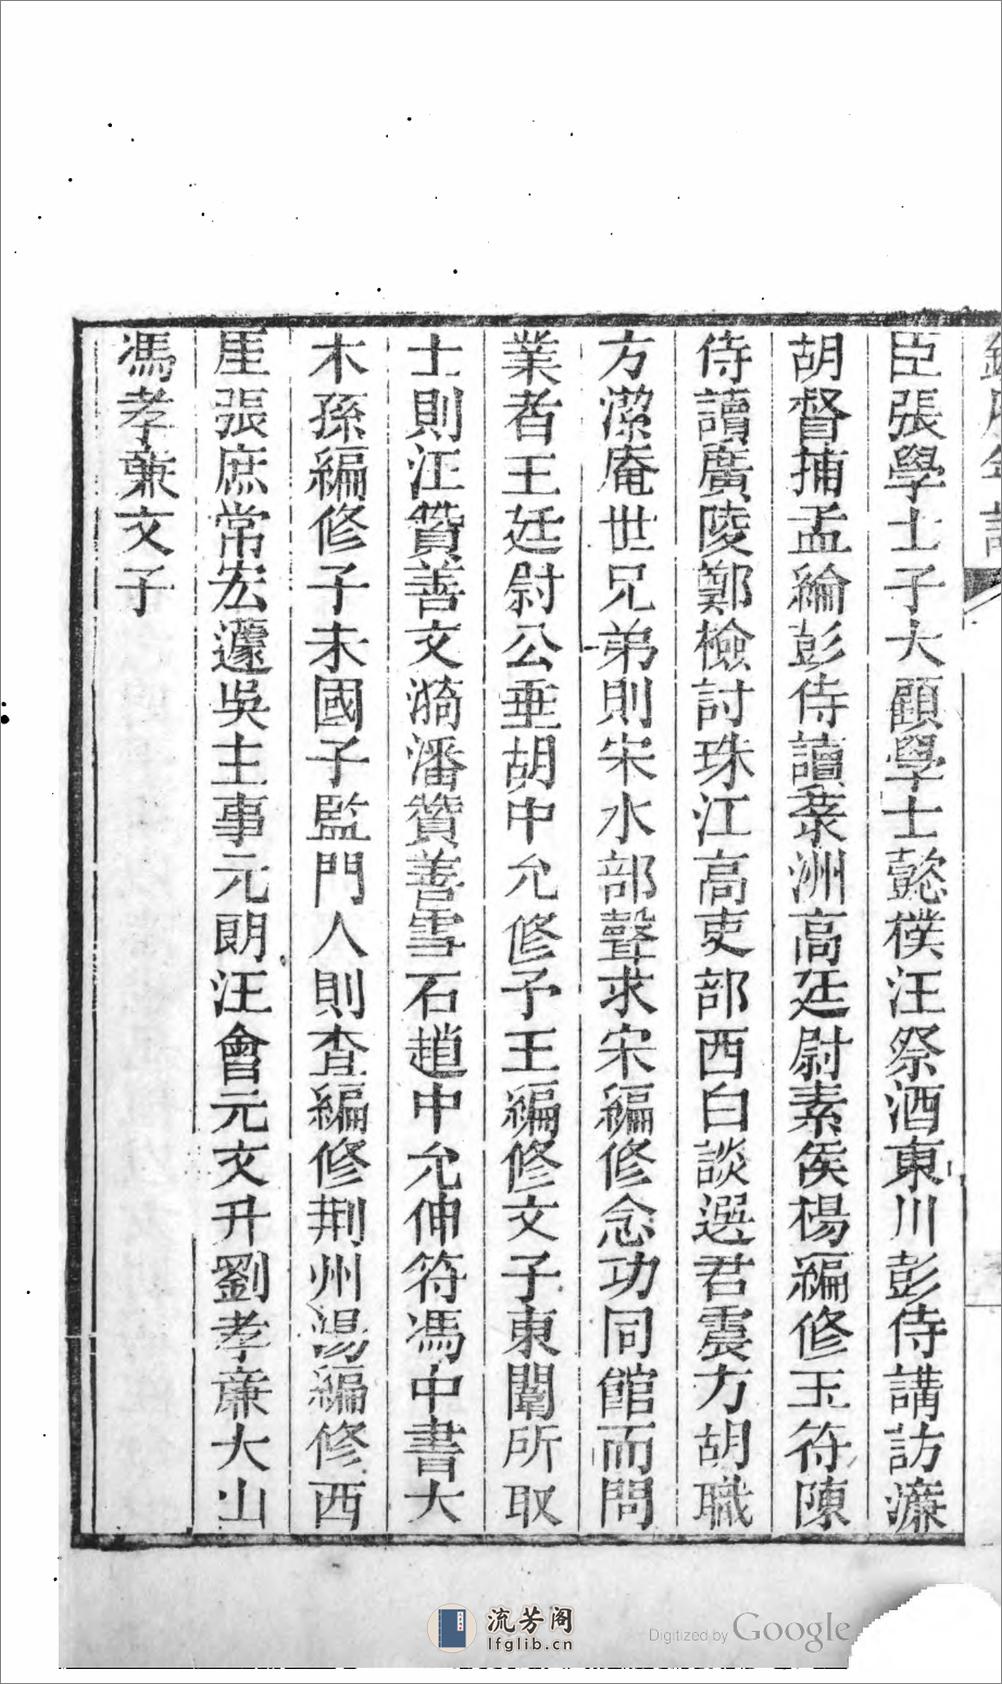 臣張學士子大顧學士懿樸汪祭酒東川彭侍講訪濂
胡督捕孟綸彭侍讀羨洲高廷尉素侯楊編修玉符陳
侍讀廣陵鄭檢討珠江高吏部西白談選君震方胡職
方潔庵世兄弟則宋水部聲求宋編修念功同館而問
業者王廷尉公垂胡中允修予王編修文子東闈所取
士則汪贊善文漪潘贊善雪石趙中允伸符馮中書大
木孫編修子未國子監門人則查編修荆州湯編修西
厓張庶常宏蘧吳主事元朗汪會元文升劉孝廉大山
馮孝廉文子
流芳阁
lfglib.cn
Digitized by Google